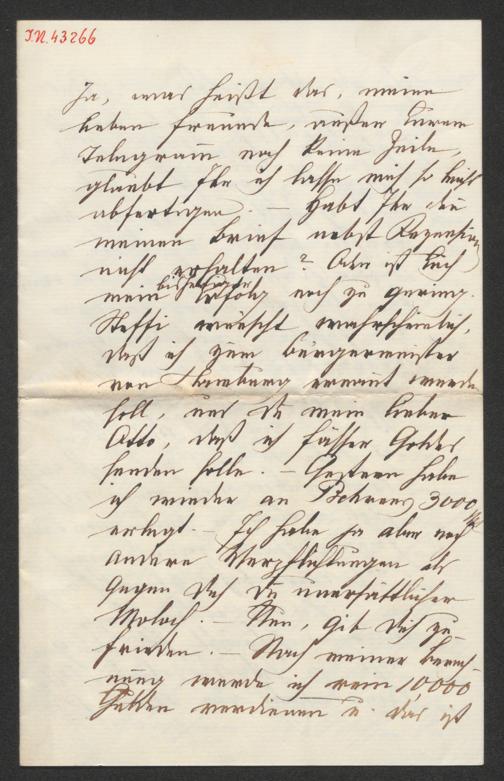 I.N. 43266
Ja, was heißt das, meine
lieben Freunde, außer Eurem
Telegramm noch keine Zeile,
glaubt Ihr ich lasse mich so leicht
abfertigen. — Habt Ihr den
meinen Brief nebst Rezension
nicht erhalten? Oder ist Euch
mein bisheriger Erfolg noch zu gering.
Steffi wünscht wahrscheinlich,
daß ich zum Bürgermeister
von Hamburg ernannt werden
soll, und Du mein lieber
Otto, daß ich Fässer Goldes
senden solle. — Gestern habe
ich wieder an Behrens 3000 M
erlegt. — Ich habe ja aber noch
andere Verpflichtungen als
gegen Dich Du unersättlicher
Moloch. — Nun, gib Dich zu-
frieden. — Nach meiner Berech-
nung werde ich rein 10000
Gulden verdienen u. das ist